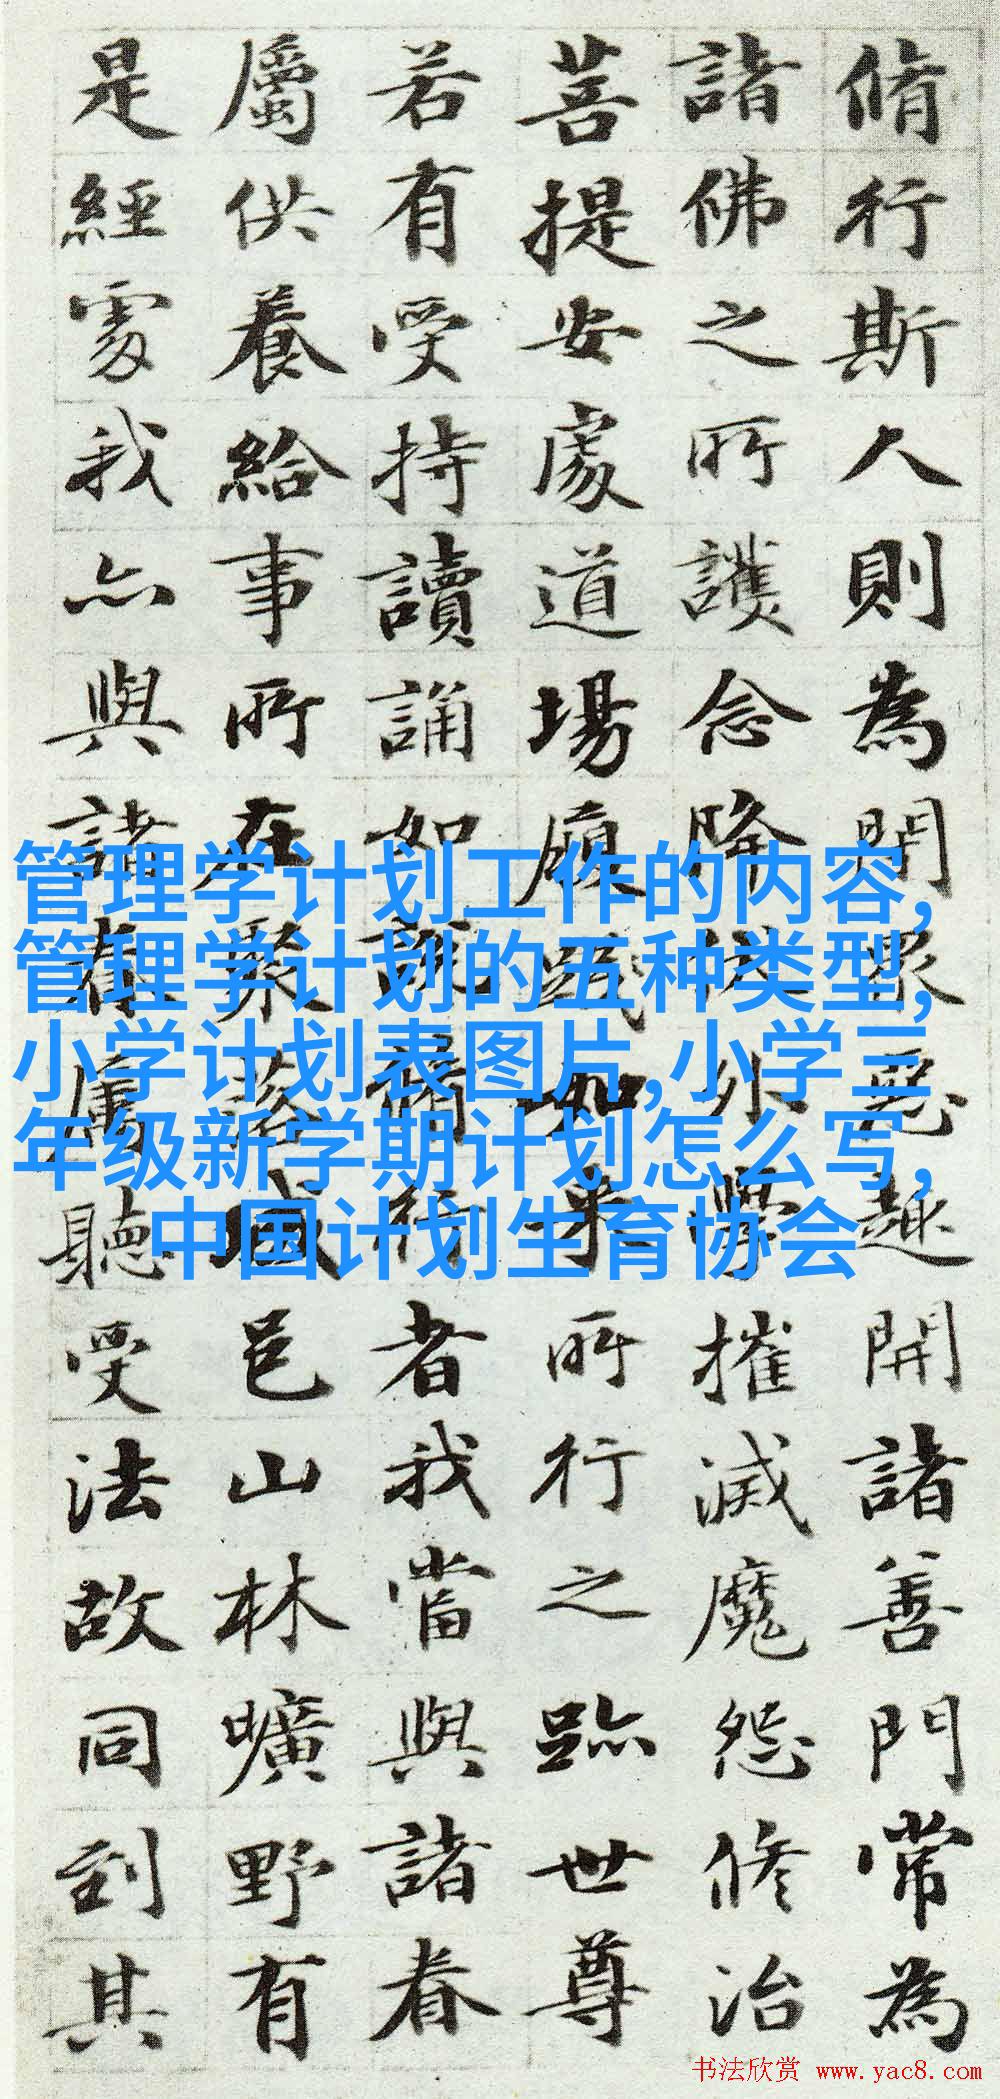 脩行斯人則為閇眾惡趣開諸善門常為
諸佛之所護念降伏外學摧滅魔怨修治
菩提安處道場履踐如來所行之跡世尊
若有受持讀誦如說脩行者我當與諸眷
屬供養給事所在聚落城邑山林曠野有
是經處我亦與諸眷屬聽受法故同到其
管理学计划工作的内容,
管理学计划的五种类型,
小学计划表图片,小学三
年级新学期计划怎么写,
中国计划生育协会
书法欣赏 www.yac8.com